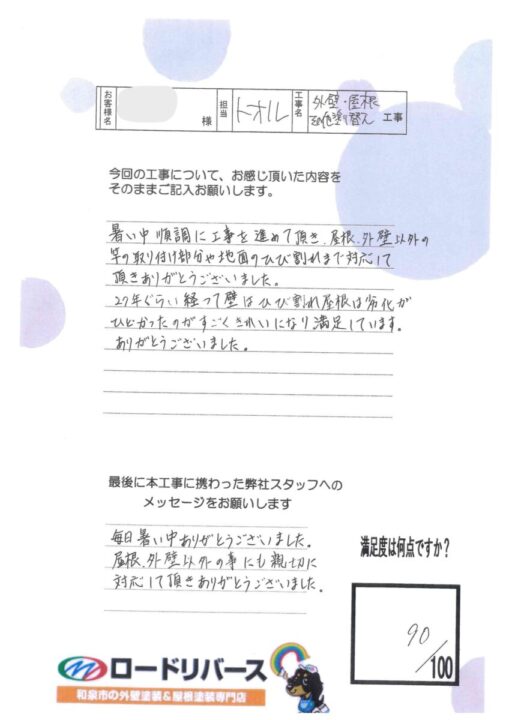 お客様名 様 担当 トオル 工事名 外壁・屋根 塗り替え 工事
今回の工事について、お感じ頂いた内容を
そのままご記入お願いします。
暑い中順調に工事を進めて頂き、屋根、外壁以外の
竿の取り付け部分や地面のひび割れまで対応して
頂きありがとうございました。
27年ぐらい経って壁はひび割れ屋根は劣化が
ひどかったのがすごくきれいになり満足しています。
ありがとうございました。
最後に本工事に携わった弊社スタッフへの
メッセージをお願いします
毎日暑い中ありがとうございました。
屋根、外壁以外の事にも親切に
対応して頂きありがとうございました。
満足度は何点ですか?
90
/100
ロードリバース
和泉市の外壁塗装&屋根塗装専門店